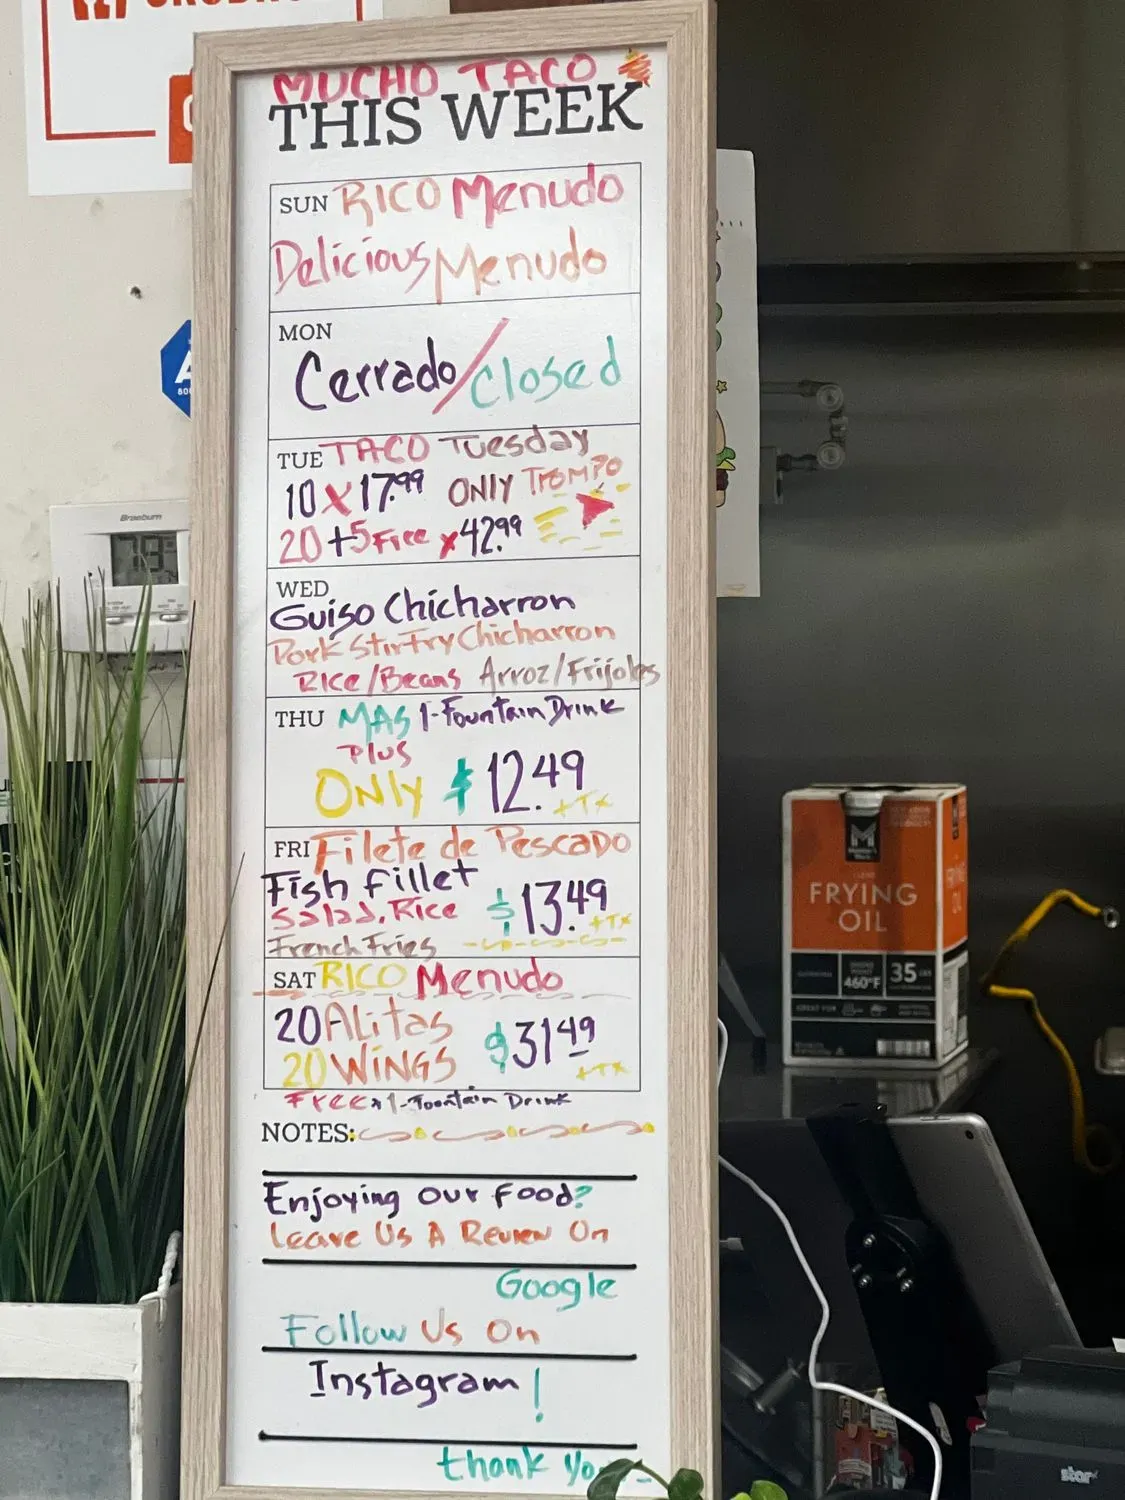 MUCHO TACO
THIS WEEK
SUN RICO Menudo
Delicious Menudo
MON
Cerrado/Closed
TUE TACO Tuesday
10 x 17.99 ONLY TROMPO
20 +5 Free x 42.99
WED
Guiso Chicharron
Pork Stir Fry Chicharron
RICE/Beans Arroz/Frijoles
THU MAS 1-Fountain Drink
Plus
ONLY $12.49
+TX
FRI Filete de Pescado
Fish fillet
Salad, Rice $13.49
+TX
French Fries
SAT RICO Menudo
20 ALitas $31.49
20 WINGS +TX
Free x 1-Fountain Drink
NOTES:
Enjoying our food?
Leave Us A Review On
Google
Follow Us On
Instagram!
thank
Braeburn
FRYING
OIL
460°F
35
star